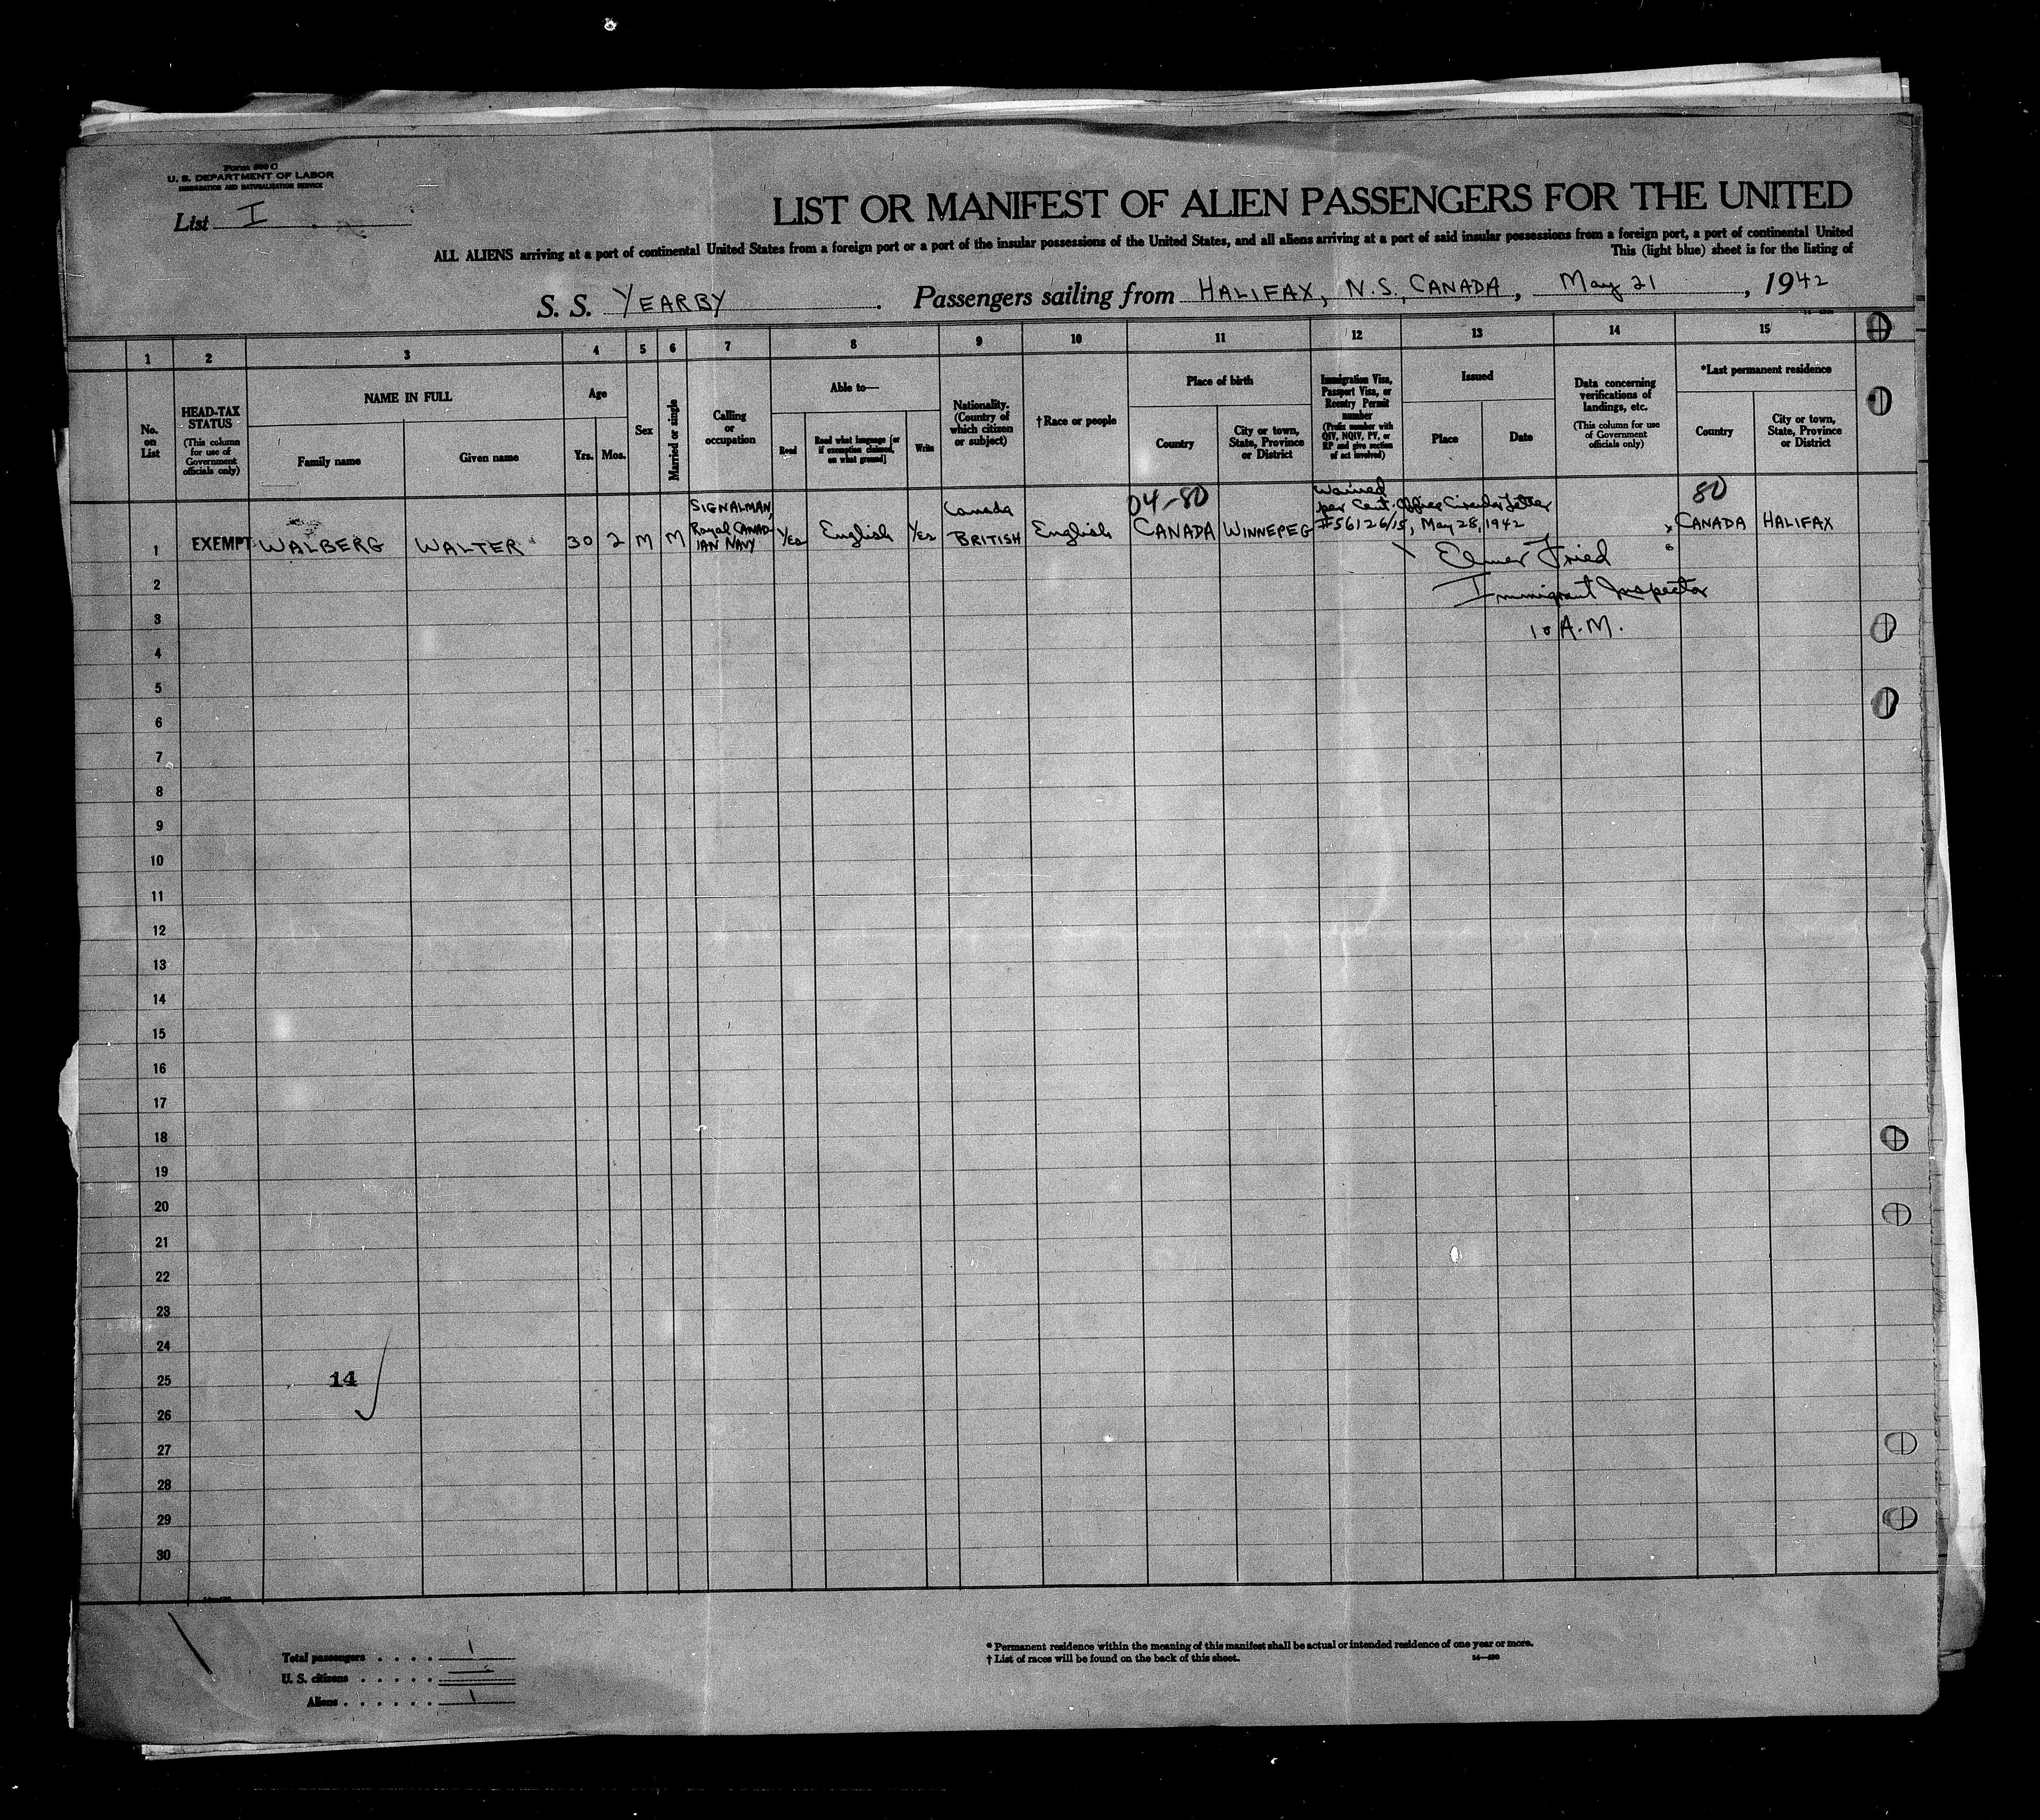 Form 500 C
U. S. DEPARTMENT OF LABOR
IMMIGRATION AND NATURALIZATION SERVICE
List I
LIST OR MANIFEST OF ALIEN PASSENGERS FOR THE UNITED
ALL ALIENS arriving at a port of continental United States from a foreign port or a port of the insular possessions of the United States, and all aliens arriving at a port of said insular possessions from a foreign port, a port of continental United
This (light blue) sheet is for the listing of
S. S. YEARBY . Passengers sailing from HALIFAX, N.S., CANADA, May 21, 1942
1 2 3 4 5 6 7 8 9 10 11 12 13 14 15
No. on List
HEAD-TAX STATUS
(This column for use of Government officials only)
NAME IN FULL
Family name
Given name
Age
Yrs. Mos.
Sex
Married or single
Calling or occupation
Able to—
Read
Read what language [or if exemption claimed, on what ground]
Write
Nationality. (Country of which citizen or subject)
†Race or people
Place of birth
Country
City or town, State, Province or District
Immigration Visa, Passport Visa, or Reentry Permit number
(Prefix number with QIV, NQIV, PV, or RP and give section of act involved)
Issued
Place
Date
Data concerning verifications of landings, etc.
(This column for use of Government officials only)
*Last permanent residence
Country
City or town, State, Province or District
1 EXEMPT WALBERG WALTER 30 2 M M SIGNALMAN, Royal CANADIAN NAVY Yes English Yes Canada BRITISH English 04-80 CANADA WINNEPEG Waived per Cent. Office Circular Letter #56126/15, May 28, 1942 80 CANADA HALIFAX
Elmer Fried
Immigrant Inspector
10 A.M.
2
3
4
5
6
7
8
9
10
11
12
13
14
15
16
17
18
19
20
21
22
23
24
25
14
26
27
28
29
30
Total passengers . . . . 1
U. S. citizens . . . . .
Aliens . . . . . . 1
* Permanent residence within the meaning of this manifest shall be actual or intended residence of one year or more.
† List of races will be found on the back of this sheet.